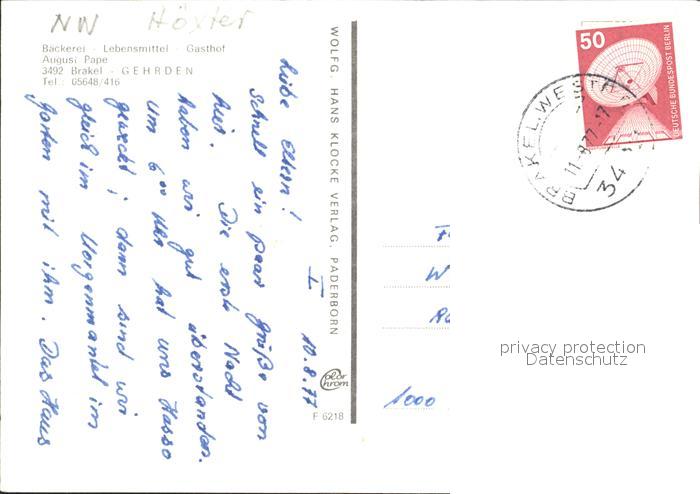 NW Höxter
Bäckerei · Lebensmittel · Gasthof
August Pape
3492 Brakel - GEHRDEN
Tel.: 05648/416
I 10.8.77
Liebe Eltern!
Schnell ein paar Grüße von
hier. Die erste Nacht
haben wir gut überstanden.
Um 6⁰⁰ Uhr hat uns Hasso
geweckt; dann sind wir
gleich im Morgenmantel im
Garten mit ihm. Das Haus
WOLFG. HANS KLOCKE VERLAG, PADERBORN
Color Chrom
F 6218
50
DEUTSCHE BUNDESPOST BERLIN
BRAKEL, WESTF
11-8.77-17
34
1000
privacy protection
Datenschutz